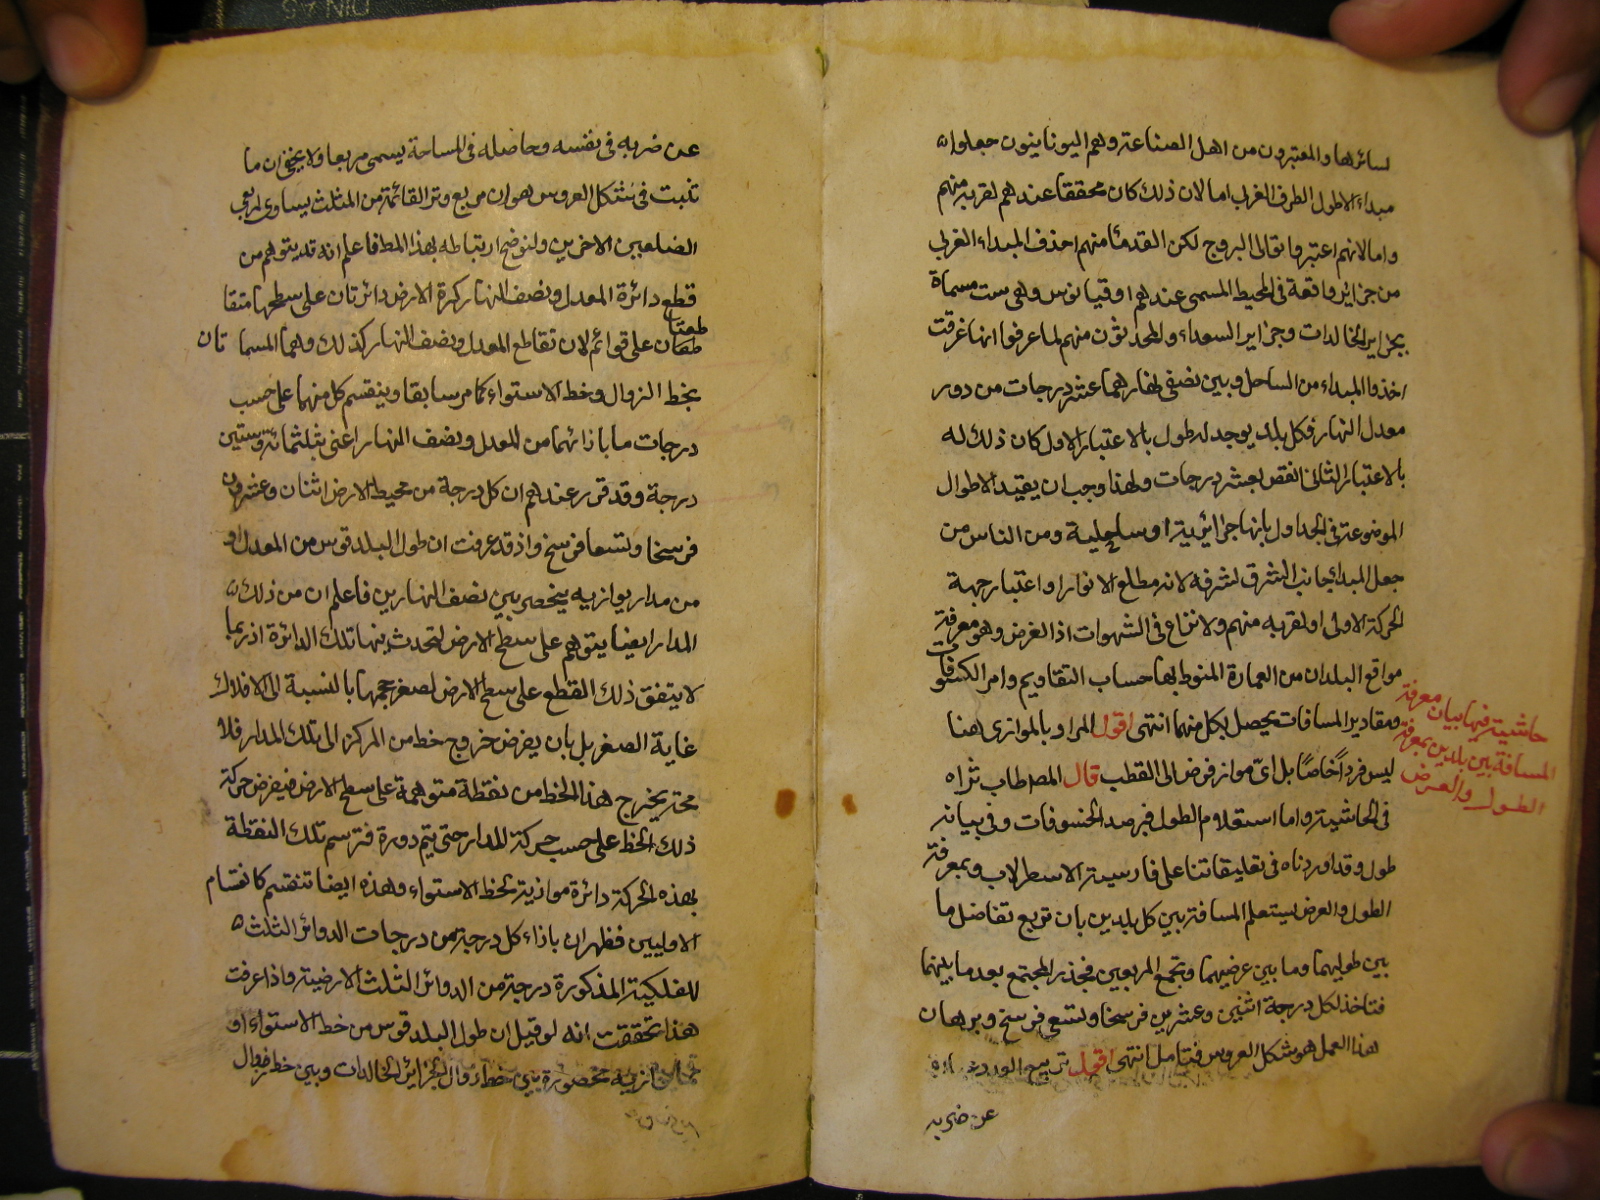 لسائرها والمعتبرون من اهل الصناعة وهم اليونانيون جعلوا
مبداء الاطول الطرف الغربي اما لان ذلك كان محققا عندهم لقربه منهم
واما لانهم اعتبروا توالى البروج لكن القدما منهم اخذ المبداء الغربي
من جزاير واقعة في المحيط المسمى عندهم اوقيانوس وهى ست مسماة
بجزاير الخالدات وجزاير السعداء والمحدثون منهم لما عرفوا انها غرقت
اخذوا المبداء من الساحل وبين نصفى نهارهما عشر درجات من دور
معدل النهار فكل بلد يوجد له طول بالاعتبار الاول كان ذلك له
بالاعتبار الثانى انقص بعشر درجات ولهذا وجب ان يقيد الاطوال
الموضوعة في الجداول بانها جزائرية او ساحلية ومن الناس من
جعل المبداء جانب الشرق لشرفه لانه مطلع الانوار او اعتبار جهة
الحركة الاولى او لقربه منهم ولا نزاع في الشهوات اذ الغرض وهو معرفة
مواقع البلدان من العمارة المنوط بها حساب التقاويم وامر الكسوفات
ومقادير المسافات يحصل بكل منهما انتهى اقول المراد بالموازى هنا
ليس فردا خاصا بل اى مواز فرض الى القطب قال المص طاب ثراه
في الحاشية واما استعلام الطول فبرصد الخسوفات وفي بيانه
طول وقد اوردناه في تعليقاتنا على فارسية الاسطرلاب وبمعرفة
الطول والعرض يستعلم المسافة بين كل بلدين بان تربع تفاضل ما
بين طوليهما وما بين عرضيهما وتجمع المربعين فجذر المجتمع بعد ما بينهما
فتاخذ لكل درجة اثنين وعشرين فرسخا وتسعى فرسخ وبرهان
هذا العمل هو شكل العروس فتامل انتهى اقول تربيع العدد
عن ضربه
حاشية فيها بيان معرفة
المسافة بين بلدين بمعرفة
الطول والعرض
عن ضربه في نفسه وحاصله في المساحة يسمى مربعا ولا يخفى ان ما
تثبت في شكل العروس هو ان مربع وتر القائمة من المثلث يساوى مربعى
الضلعين الاخرين ولنوضح ارتباطه بهذا المط فاعلم انه قد يتوهم من
قطع دائرة المعدل ونصف النهار كرة الارض دائرتان على سطحها متقا
طعتان على قوائم لان تقاطع المعدل ونصف النهار كذلك وهما المسما تان
بخط الزوال وخط الاستواء كما مر سابقا وينقسم كل منهما على حسب
درجات ما بازائهما من المعدل ونصف النهار اعنى بثلثمائة وستين
درجة وقد قرر عندهم ان كل درجة من محيط الارض اثنان وعشرون
فرسخا وتسعا فرسخ واذ قد عرفت ان طول البلد قوس من المعدل او
من مدار يوازيه ينحصر بين نصف النهارين فاعلم ان من ذلك
المدار ايضا يتوهم على سطح الارض لتحدث بها تلك الدائرة اذ ربما
لا يتفق ذلك القطع على سطح الارض لصغر حجمها بالنسبة الى الافلاك
غاية الصغر بل بان يفرض خروج خط من المركز الى تلك المدار فلا
محة يخرج هذا الخط من نقطة متوهمة على سطح الارض فيفرض حركة
ذلك الخط على حسب حركة المدار حتى يتم دورة فترسم تلك النقطة
بهذه الحركة دائرة موازية لخط الاستواء وهذه ايضا تنقسم كانقسام
الاوليين فظهر ان بازاء كل درجة من درجات الدوائر الثلث
الفلكية المذكورة درجة من الدوائر الثلث الارضية واذا عرفت
هذا تحققت انه لو قيل ان طول البلد قوس من خط الاستواء او
يوازيه محصورة بين خط زوال الجزائر الخالدات وبين خط زوال